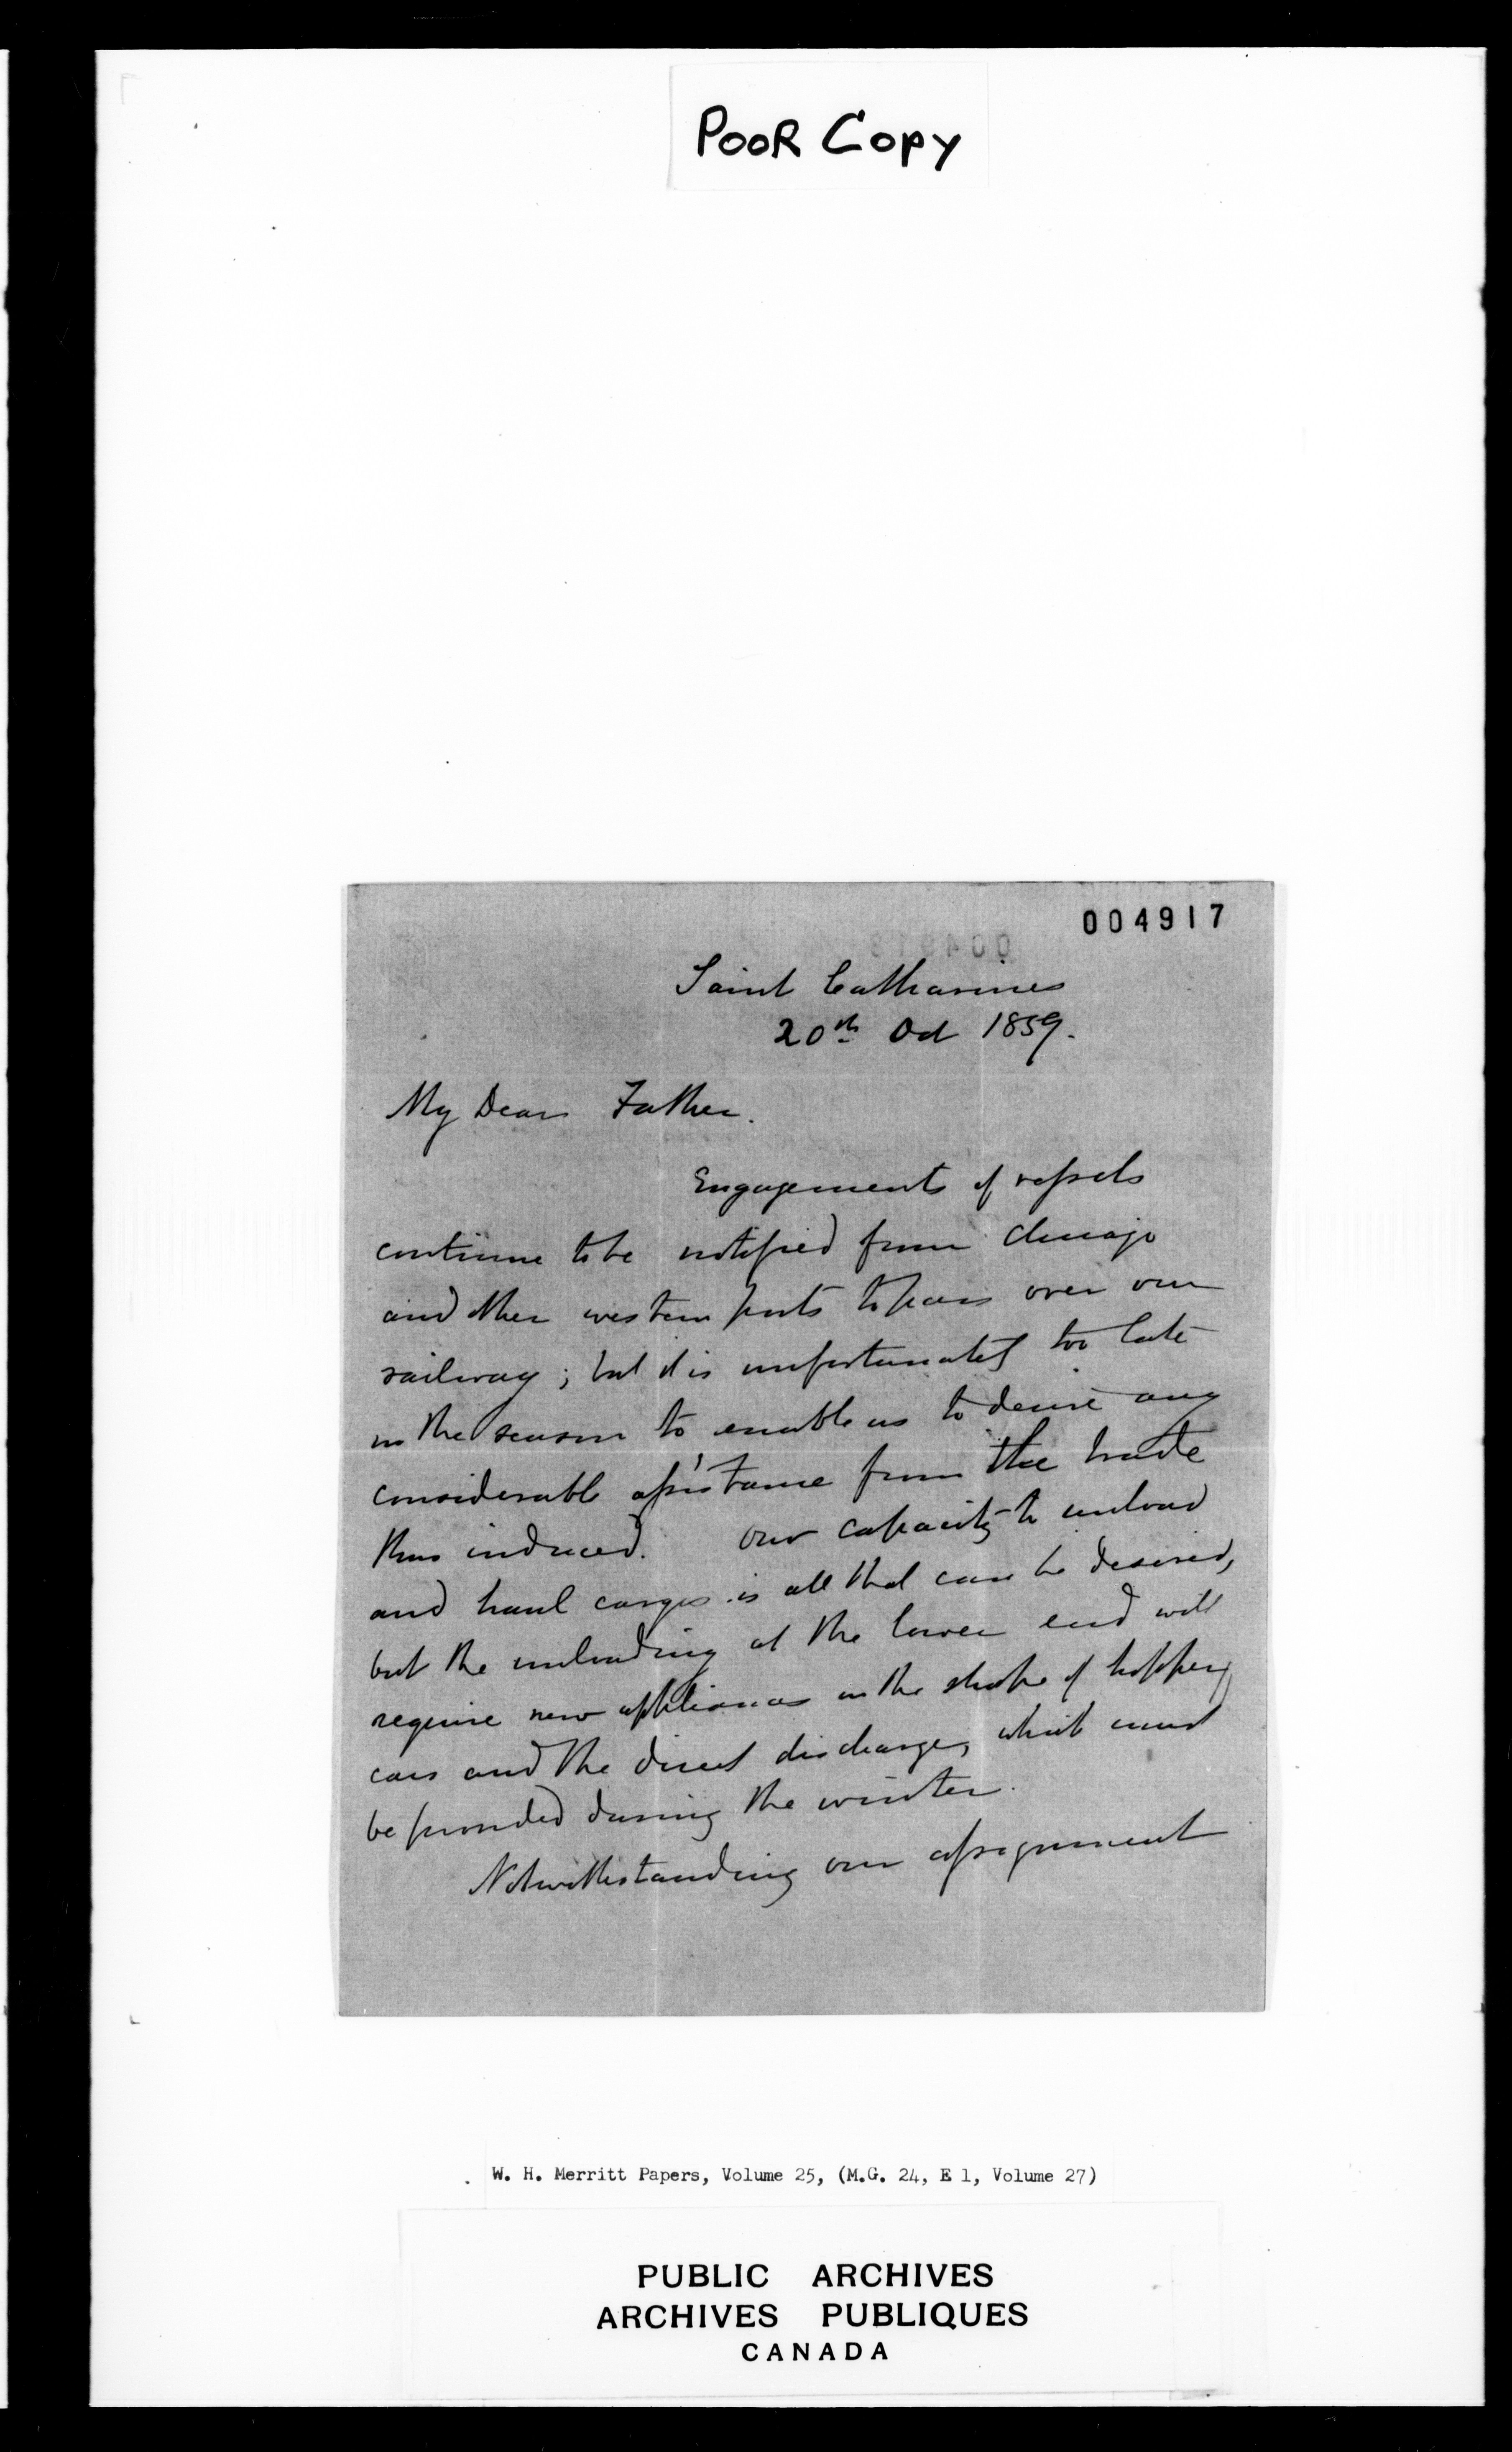 Poor Copy
004917
Saint Catharines
20th Oct 1859.
My Dear Father.
Engagements of vessels
continue to be notified from Chicago
and other western ports to pass over our
railway; but it is unfortunately too late
in the season to enable us to derive any
considerable assistance from the trade
thus induced. Our capacity to unload
and haul cargos is all that can be desired,
but the unloading at the lower end will
require new appliances in the shape of hopper
cars and the direct discharge, which must
be provided during the winter.
Notwithstanding our assignment
W. H. Merritt Papers, Volume 25, (M.G. 24, E 1, Volume 27)
PUBLIC ARCHIVES
ARCHIVES PUBLIQUES
CANADA